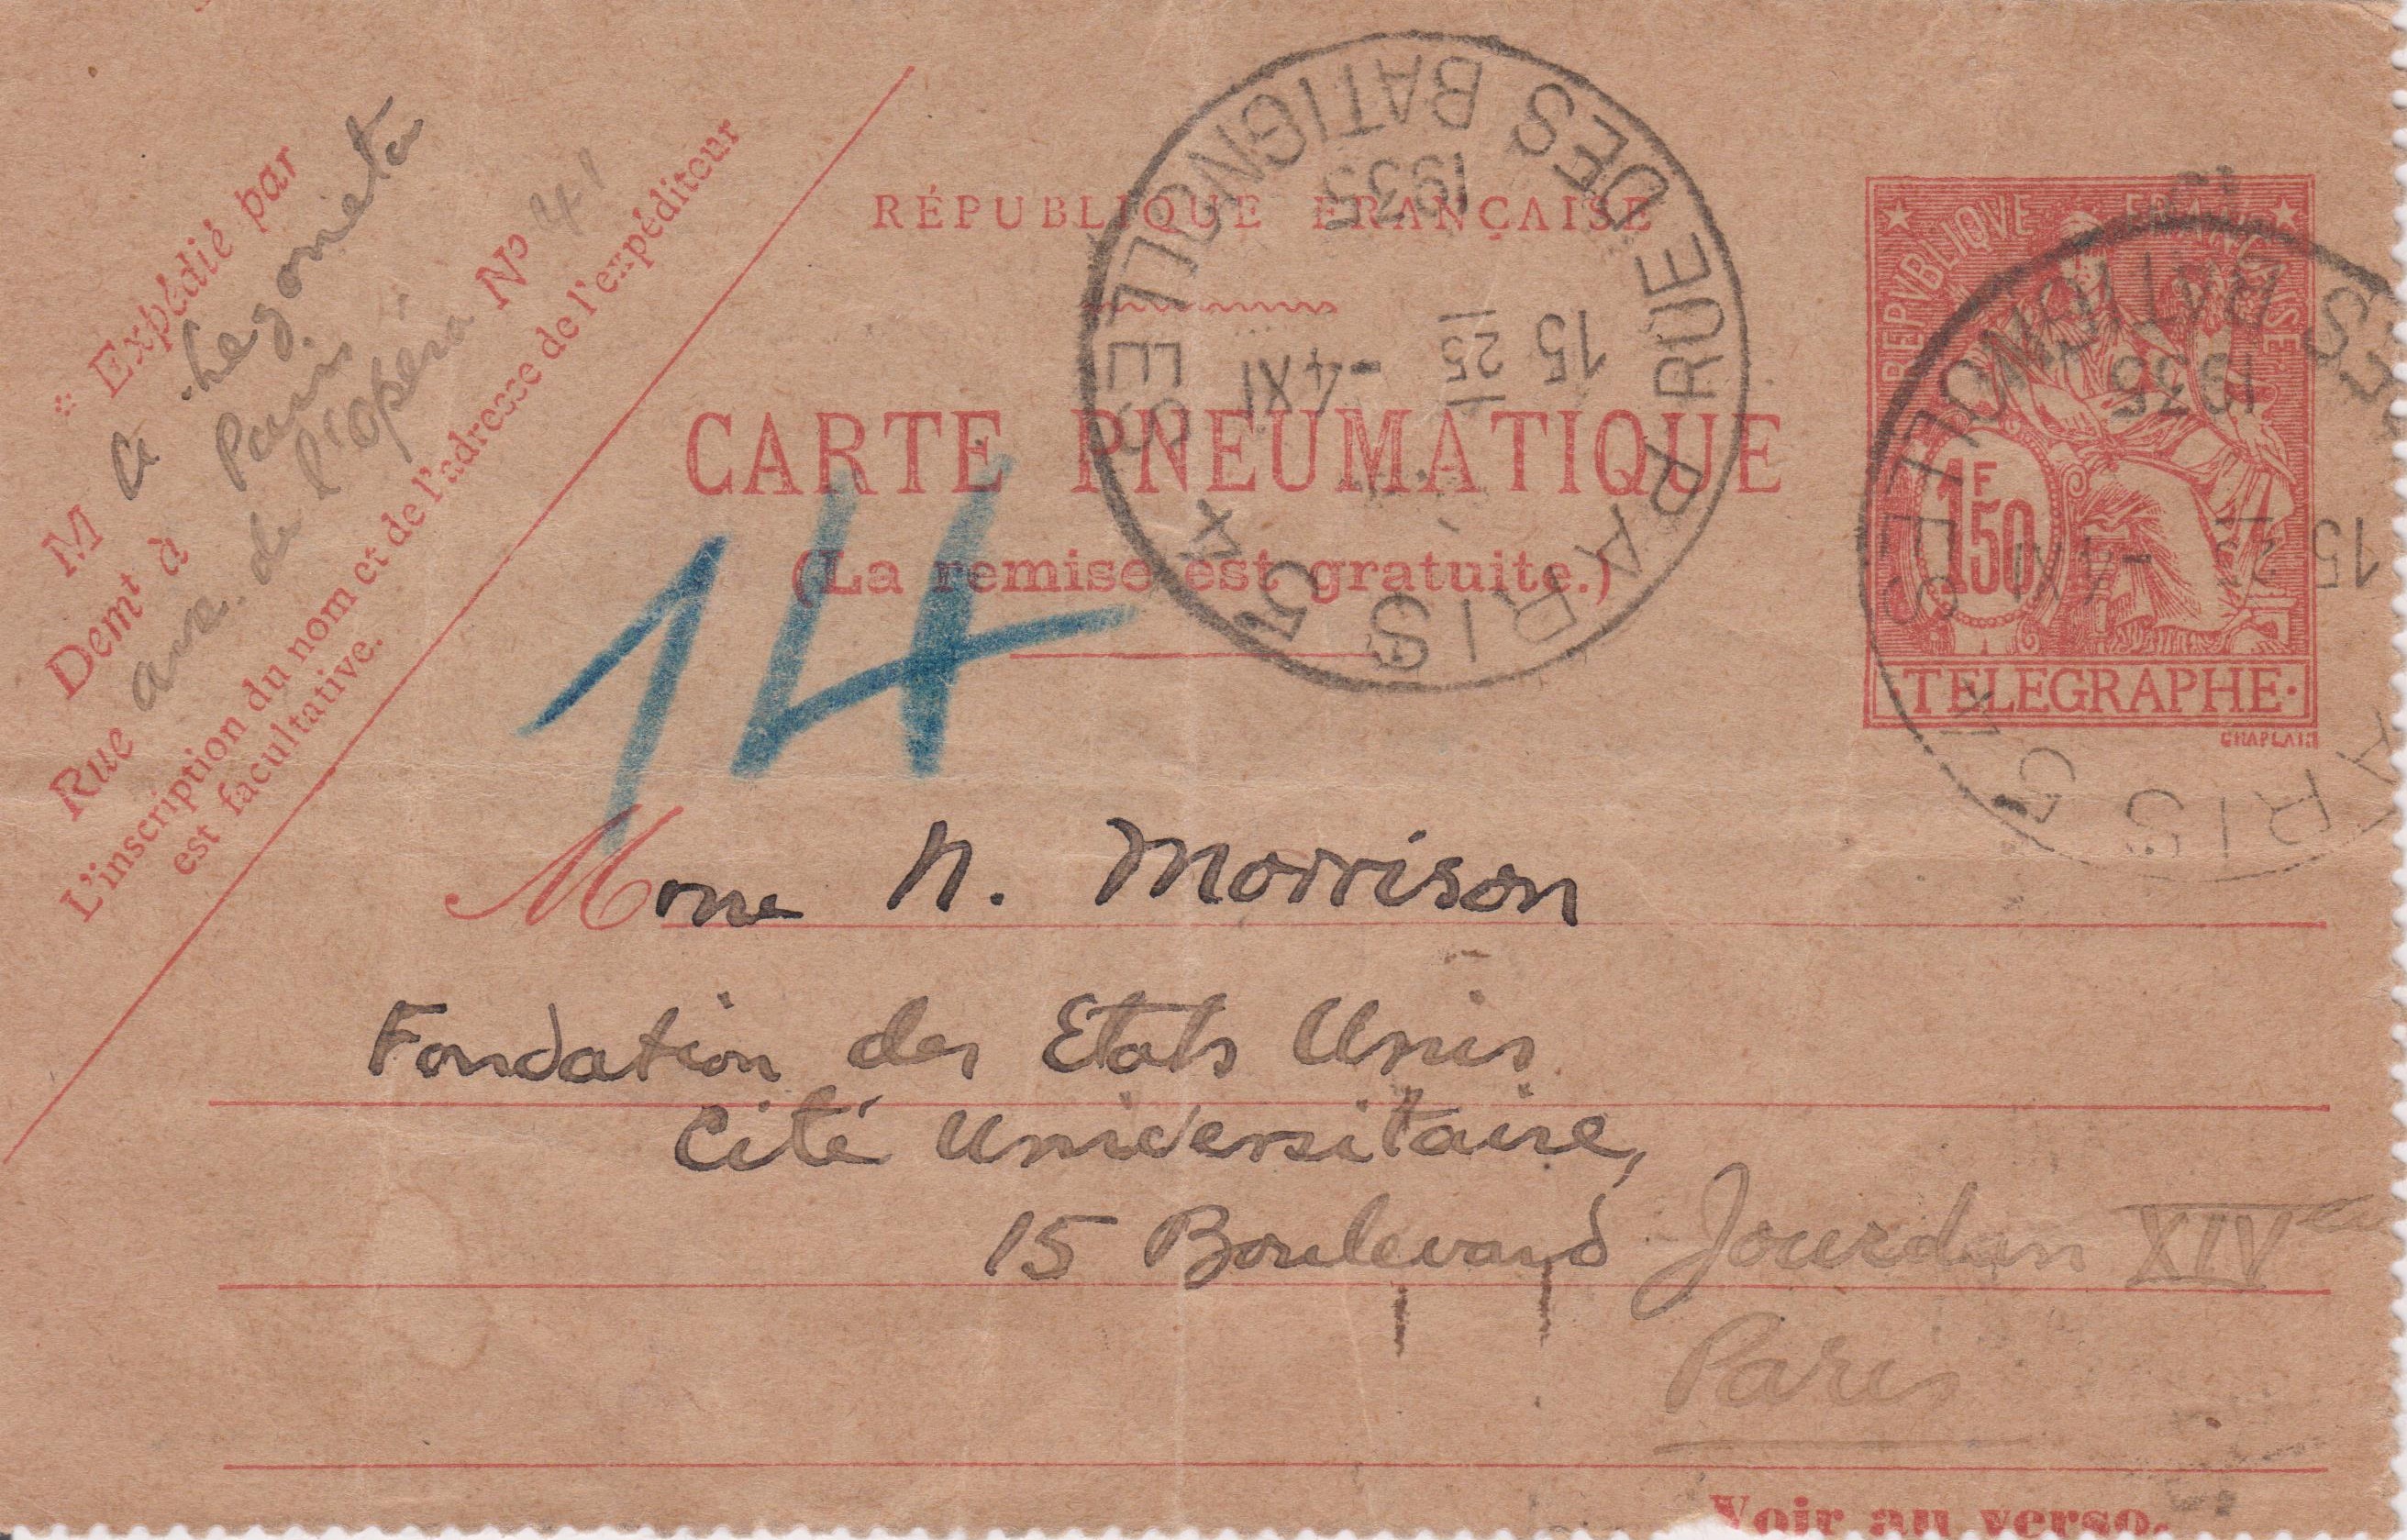 Expédié par
M
Demt à Paris
Rue ave. de l'opéra No 41
L'inscription du nom et de l'adresse de l'expéditeur
est facultative.
RÉPUBLIQUE FRANÇAISE
CARTE PNEUMATIQUE
(La remise est gratuite.)
14
PARIS 54
RUE DES BATIGNOLLES
15 25
-4 XI
1935
REPVBLIQVE FRANCAISE
1F50
·TELEGRAPHE·
CHAPLAIN
PARIS 54
ES BATIGNOLLES
15 2
-4 XI
1935
Mme N. Morrison
Fondation des Etats Unis
Cité Universitaire,
15 Boulevard Jourdan XIVe
Paris
Voir au verso.